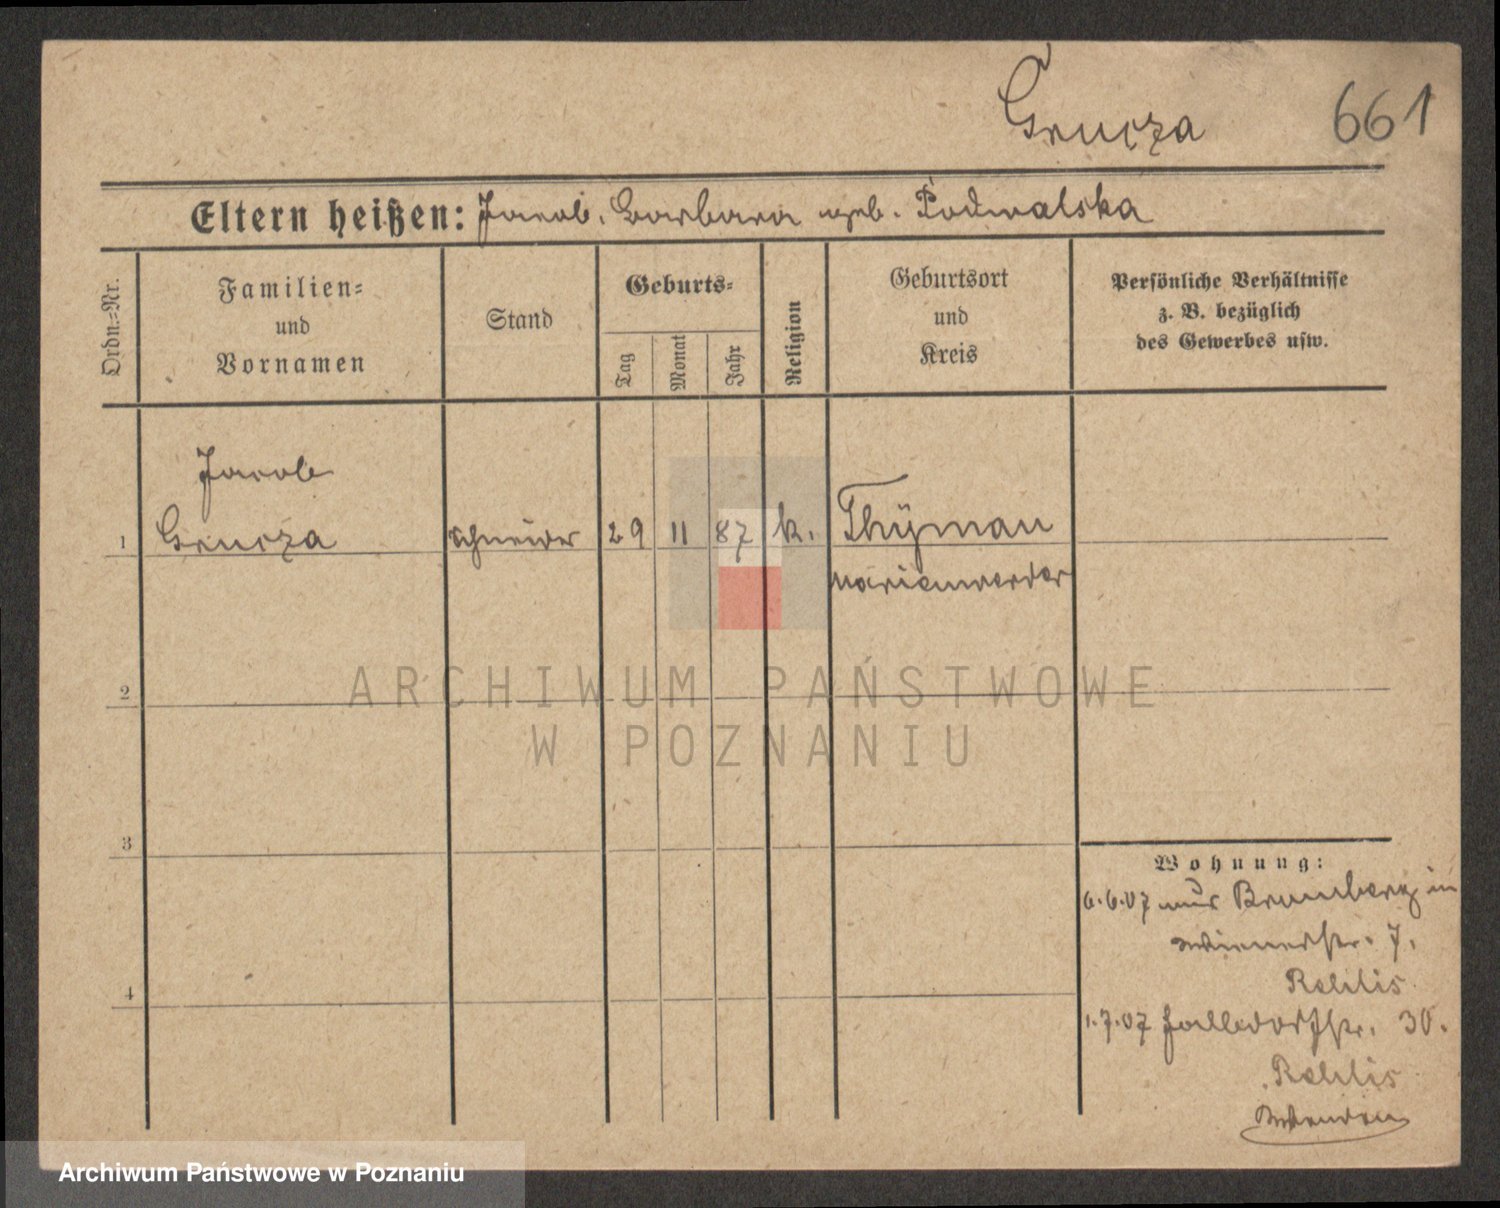 Grucza
661
Eltern heißen: Jacob, Barbara geb. Podwalska
Ordn.-Nr.
Familien-
und
Vornamen
Stand
Geburts-
Tag
Monat
Jahr
Religion
Geburtsort
und
Kreis
Persönliche Verhältnisse
z. B. bezüglich
des Gewerbes usw.
Jacob
1 Grucza Schneider 29 11 87 k. Thÿman
Marienwerder
2
3
4
Wohnung:
6.6.07 aus Bromberg in
Wienerstr. 7.
1.7.07 str. 30.
ARCHIWUM PAŃSTWOWE
W POZNANIU
Archiwum Państwowe w Poznaniu